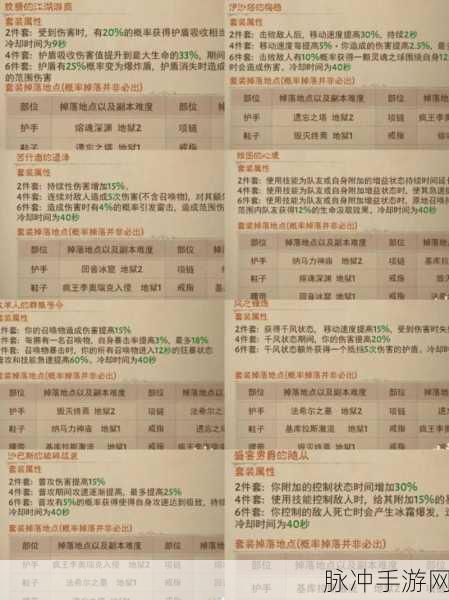 套装属性
2件套：受到伤害时，有20%的概率获得护盾吸收相当
冷却时间为9秒
4件套：护盾吸收伤害值提升到最大生命的33%，期间
6件套：护盾有25%概率变为爆炸盾，护盾消失时造成
的范围伤害
套装掉落地点(概率掉落并非必出)
部位 掉落地点以及副本难度 部位
护手 熔魂深渊 地狱2 项链
鞋子 遗忘之塔 地狱 戒指
套装属性
2件套：击败敌人后，移动速度提高30%，持续2秒
4件套：移动速度每提高5%，你造成的伤害提高2.5%，最
6件套：击败敌人有10%概率获得一颗灵魂之球围绕自身12
时会造成伤害，冷却时间为40秒
套装掉落地点(概率掉落并非必出)
部位 掉落地点以及副本难度 部位
护手 遗忘之塔 地狱2 项链
鞋子 毁灭终焉 地狱1 戒指 疯王李
苦行者的遗泽
套装属性
2件套：持续性伤害增加15%，
4件套：连续对敌人造成5次伤害(不含召唤物)，对其额
6件套：造成伤害时有4%的概率引发雷击，造成范围伤
冷却时间为40秒
套装掉落地点(概率掉落并非必出)
部位 掉落地点以及副本难度 部位
护手 回音冰窟 地狱2 项链
鞋子 疯王李奥瑞克入侵 地狱1 戒指
套装属性
2件套：使用技能为队友或自身附加的增益状态持续时间延长
4件套：使用技能为队友或自身附加增益状态时，使其急速提
6件套：使用技能为队友或自身附加增益状态时，原地召唤
范围内队友获得12%的生命汲取效果，冷却时间为40秒
套装掉落地点(概率掉落并非必出)
部位 掉落地点以及副本难度 部位
护手 纳马力神庙 地狱1 项链 基库拉
鞋子 熔魂深渊 地狱1 戒指 毁灭
腰带 回音冰窟 地狱1
套装属性
2件套：你的召唤物造成伤害提高15%
4件套：每拥有一名召唤物，自身暴击率提高3%，最多18%
6件套：召唤物暴击时，你的所有召唤物进入12秒的狂暴状态
普攻和技能急速提高60%，冷却时间为40秒
套装掉落地点(概率掉落并非必出)
部位 掉落地点以及副本难度 部位
护手 毁灭终焉 地狱2 项链
鞋子 纳马力神庙 地狱1 戒指 遗忘之
腰带 基库拉斯激流 地狱1
套装属性
2件套：获得千风状态，移动速度提高15%，受到伤害时失
4件套：千风状态期间，你的伤害提高20%
6件套：千风状态额外获得一个抵挡5次伤害的护盾，冷却时
套装掉落地点(概率掉落并非必出)
部位 掉落地点以及副本难度 部位
护手 法希尔之墓 地狱2 项链
鞋子 基库拉斯激流 地狱1 戒指 遗忘
腰带 毁灭终焉 地狱1
套装属性
2件套：普攻伤害提高15%
4件套：普攻期间攻速逐渐提高，最多提高25%
6件套：普攻有5%的概率获得使得自身攻速达到极致，持续
冷却时间为40秒
套装掉落地点(概率掉落并非必出)
部位 掉落地点以及副本难度 部位
护手 疯王李奥瑞克入侵 地狱2 项链
鞋子 法希尔之墓 地狱1 戒指
套装属性
2件套：你附加的控制状态时间增加30%
4件套：使用技能控制敌人时，给其附加15%的易
6件套：你控制的敌人死亡时会产生冰霜爆发，造
冷却时间为40秒
套装掉落地点(概率掉落并非必出)
部位 掉落地点以及副本难度
护手 基库拉斯激流
脉冲手游网